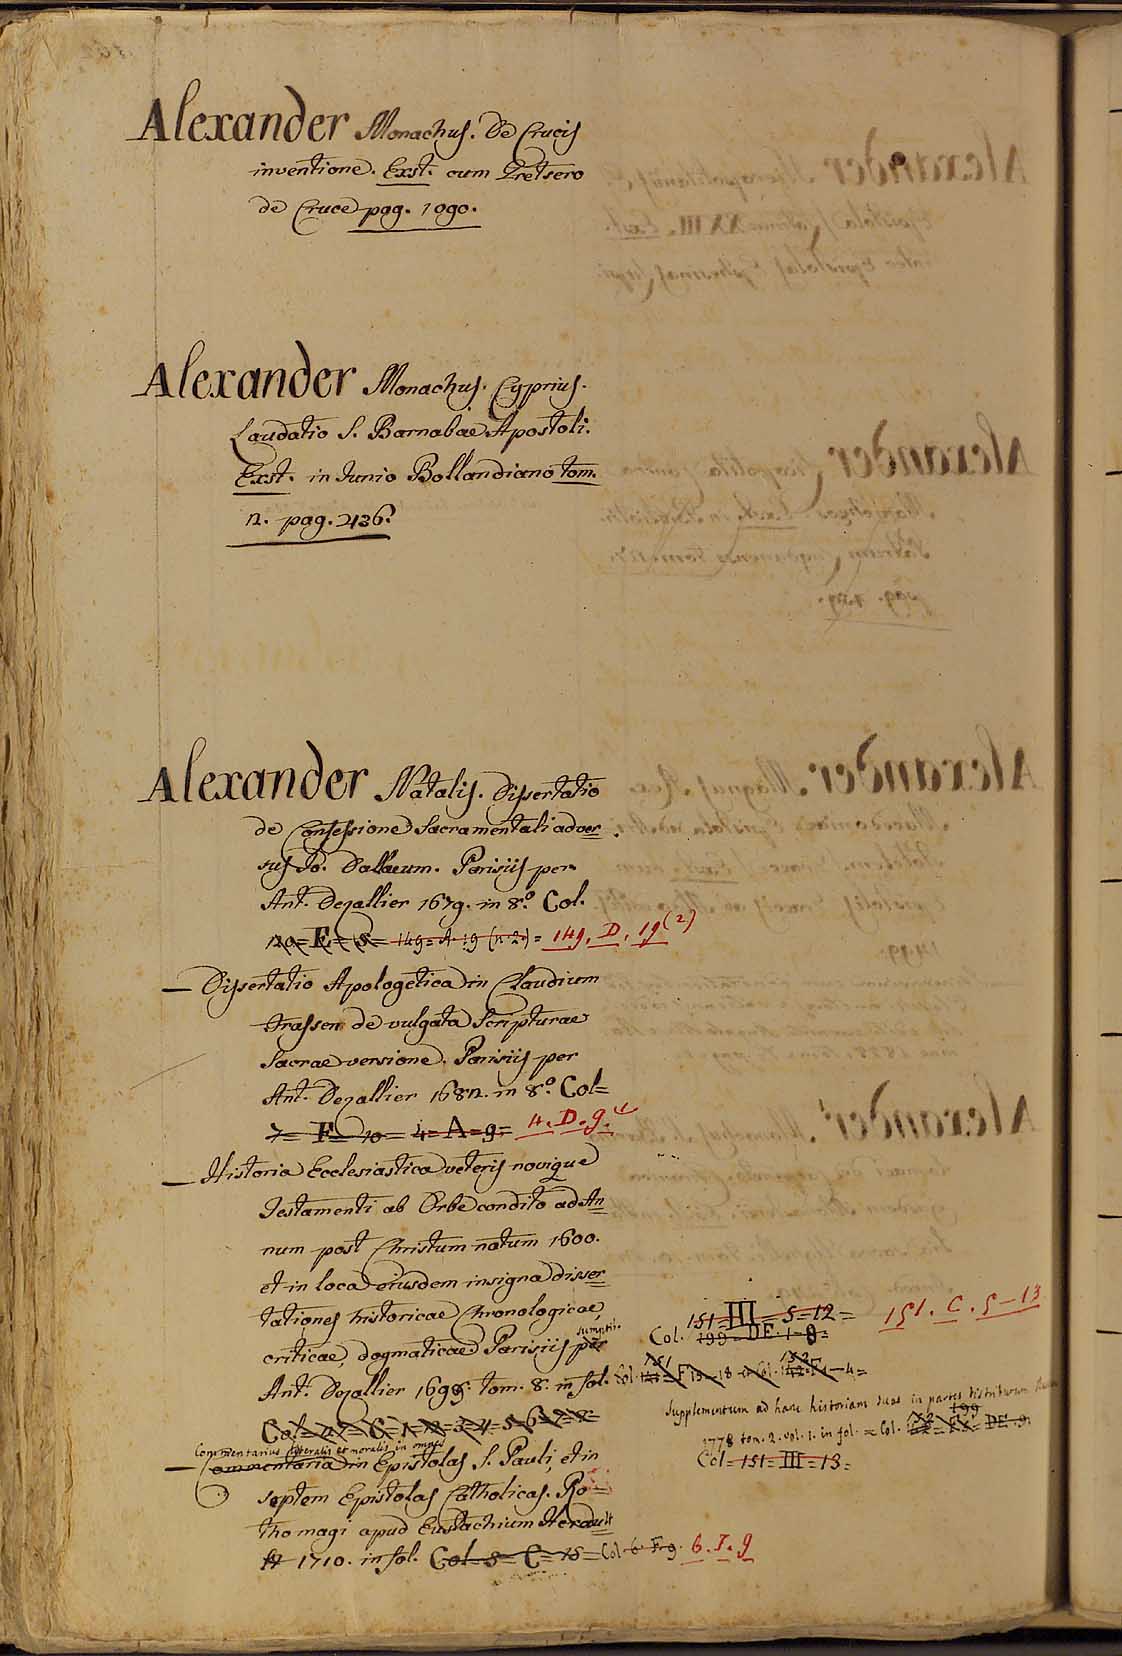 Alexander Monachus. De Crucis
inventione. Exst. cum Gretsero
de Cruce pag. 1090.
Alexander Monachus. Cyprius.
Laudatio S. Barnabae Apostoli.
Exst. in Iunio Bollandiano tom.
2. pag. 436.
Alexander Natalis. Dissertatio
de Confessione Sacramentali adver
sus Io. Dallaeum. Parisiis per
Ant. Dezallier 1679. in 8.º Col.
149 = A. 19 (n. 2.) = 149. D. 19 (2)
— Dissertatio Apologetica in Claudium
Frassen de vulgata Scripturae
Sacrae versione. Parisiis per
Ant. Dezallier 1682. in 8.º Col=
7= F= 10= 4= A= 9= 4. D. 9.
— Historia Ecclesiastica veteris novique
Testamenti ab Orbe condito ad An
num post Christum natum 1600.
et in loca eiusdem insigna disser
tationes historicae Chronologicae,
criticae, dogmaticae Parisiis per sumptib.
Ant. Dezallier 1699. tom. 8. in fol.
Col. 151 = III = 5 = 12 = 151. C. 5 - 13
199 = DE. 1 - 8 =
Supplementum ad hanc historiam suas in partes distributum
1778 tom. 2. vol. 1. in fol. = Col. 199 DE. 9.
Col = 151 = III = 13 =
Commentarius litteralis et moralis in omnes
— Commentaria in Epistolas S. Pauli, et in
septem Epistolas Catholicas. Ro
thomagi apud Eustachium Herault
1710. in fol. Col = 8 = C = 15 = Col 6 F. 9. 6. I. 9